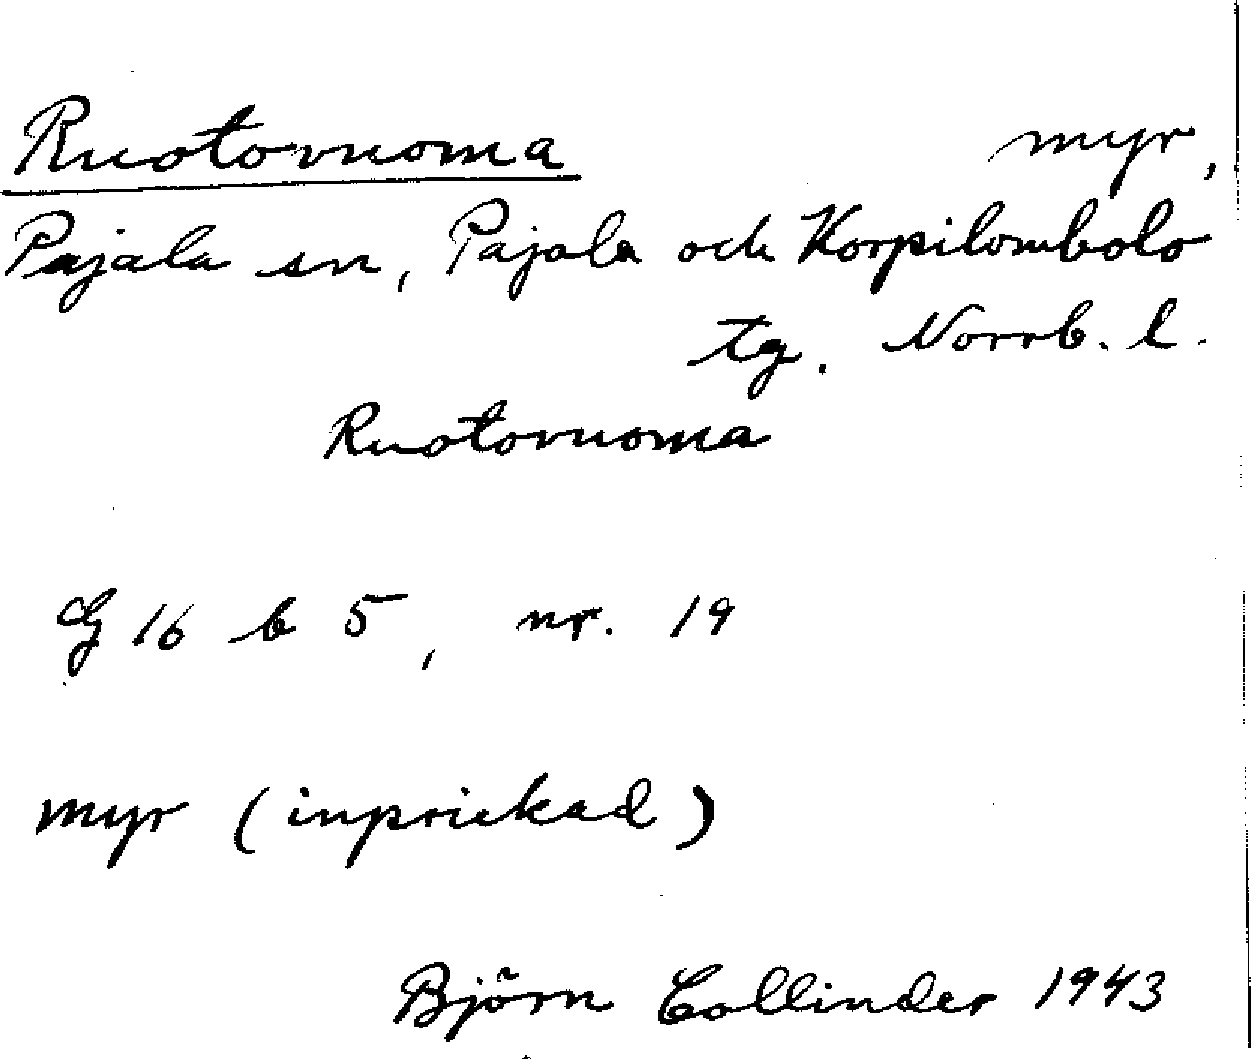 Ruotovuoma myr,
Pajala sn, Pajala och Korpilombolo
tg. Norrb. l.
Ruotovuoma
G 16 b 5, nr. 19
myr (inprickad)
Björn Collinder 1943